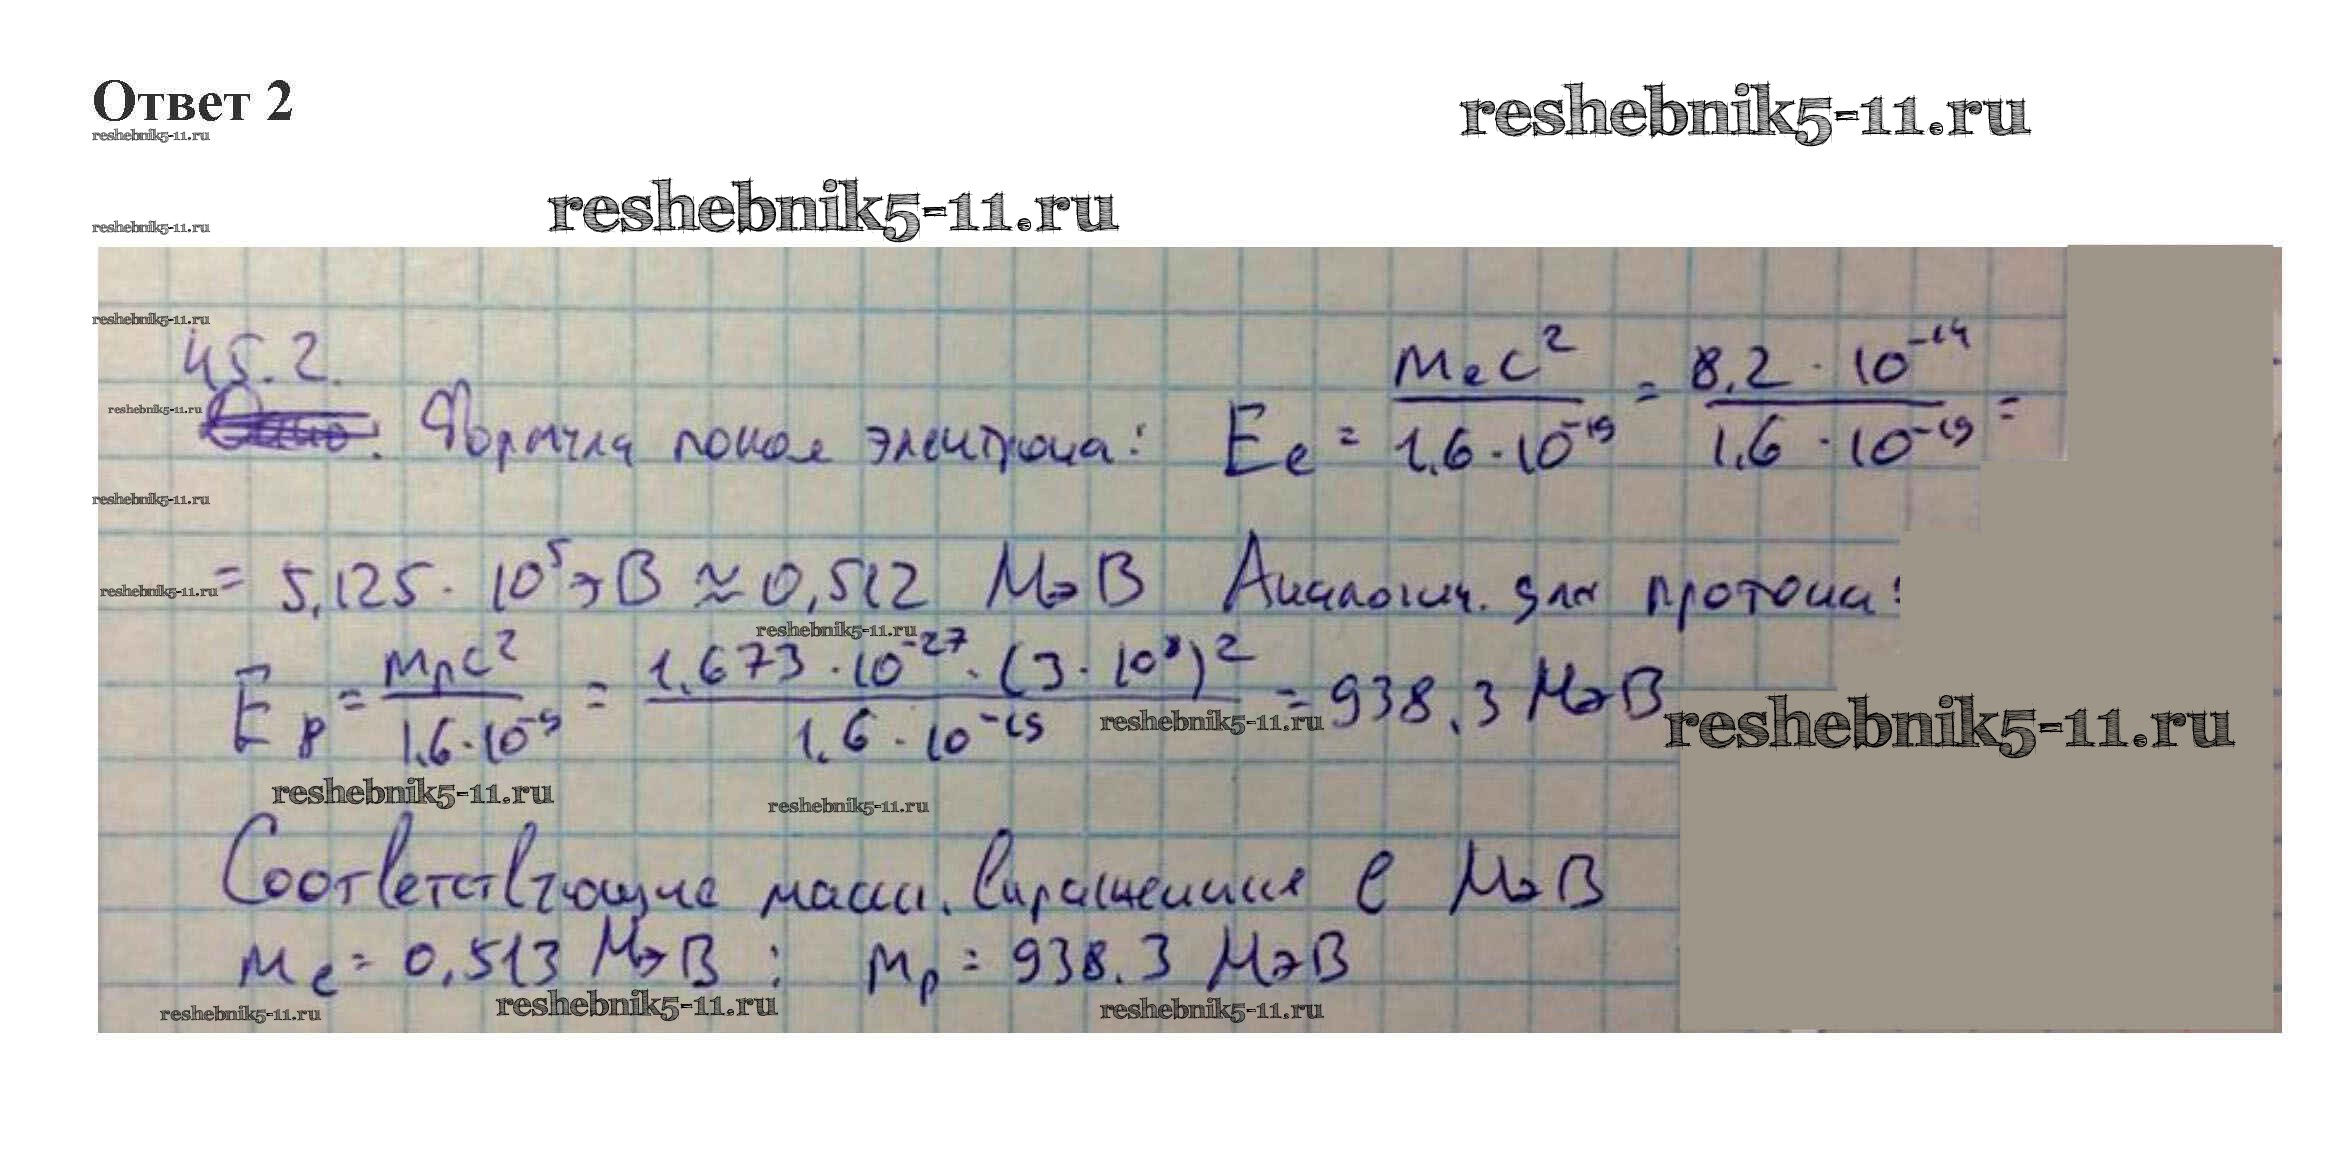 Ответ 2
reshebnik5-11.ru
reshebnik5-11.ru
reshebnik5-11.ru
reshebnik5-11.ru
reshebnik5-11.ru
45.2.
reshebnik5-11.ru
Формула покоя электрона: E_e = m_e c² / 1,6 · 10⁻¹⁹ = 8,2 · 10⁻¹⁴ / 1,6 · 10⁻¹⁹ =
reshebnik5-11.ru
= 5,125 · 10⁵ эВ ≈ 0,512 МэВ Аналогич. для протона:
reshebnik5-11.ru
reshebnik5-11.ru
E_p = m_p c² / 1,6 · 10⁻⁹ = 1,673 · 10⁻²⁷ · (3 · 10⁸)² / 1,6 · 10⁻¹⁹ = 938,3 МэВ
reshebnik5-11.ru
reshebnik5-11.ru
reshebnik5-11.ru
reshebnik5-11.ru
Соответствующие массы, выраженные в МэВ
m_e = 0,513 МэВ ; m_p = 938,3 МэВ
reshebnik5-11.ru
reshebnik5-11.ru
reshebnik5-11.ru